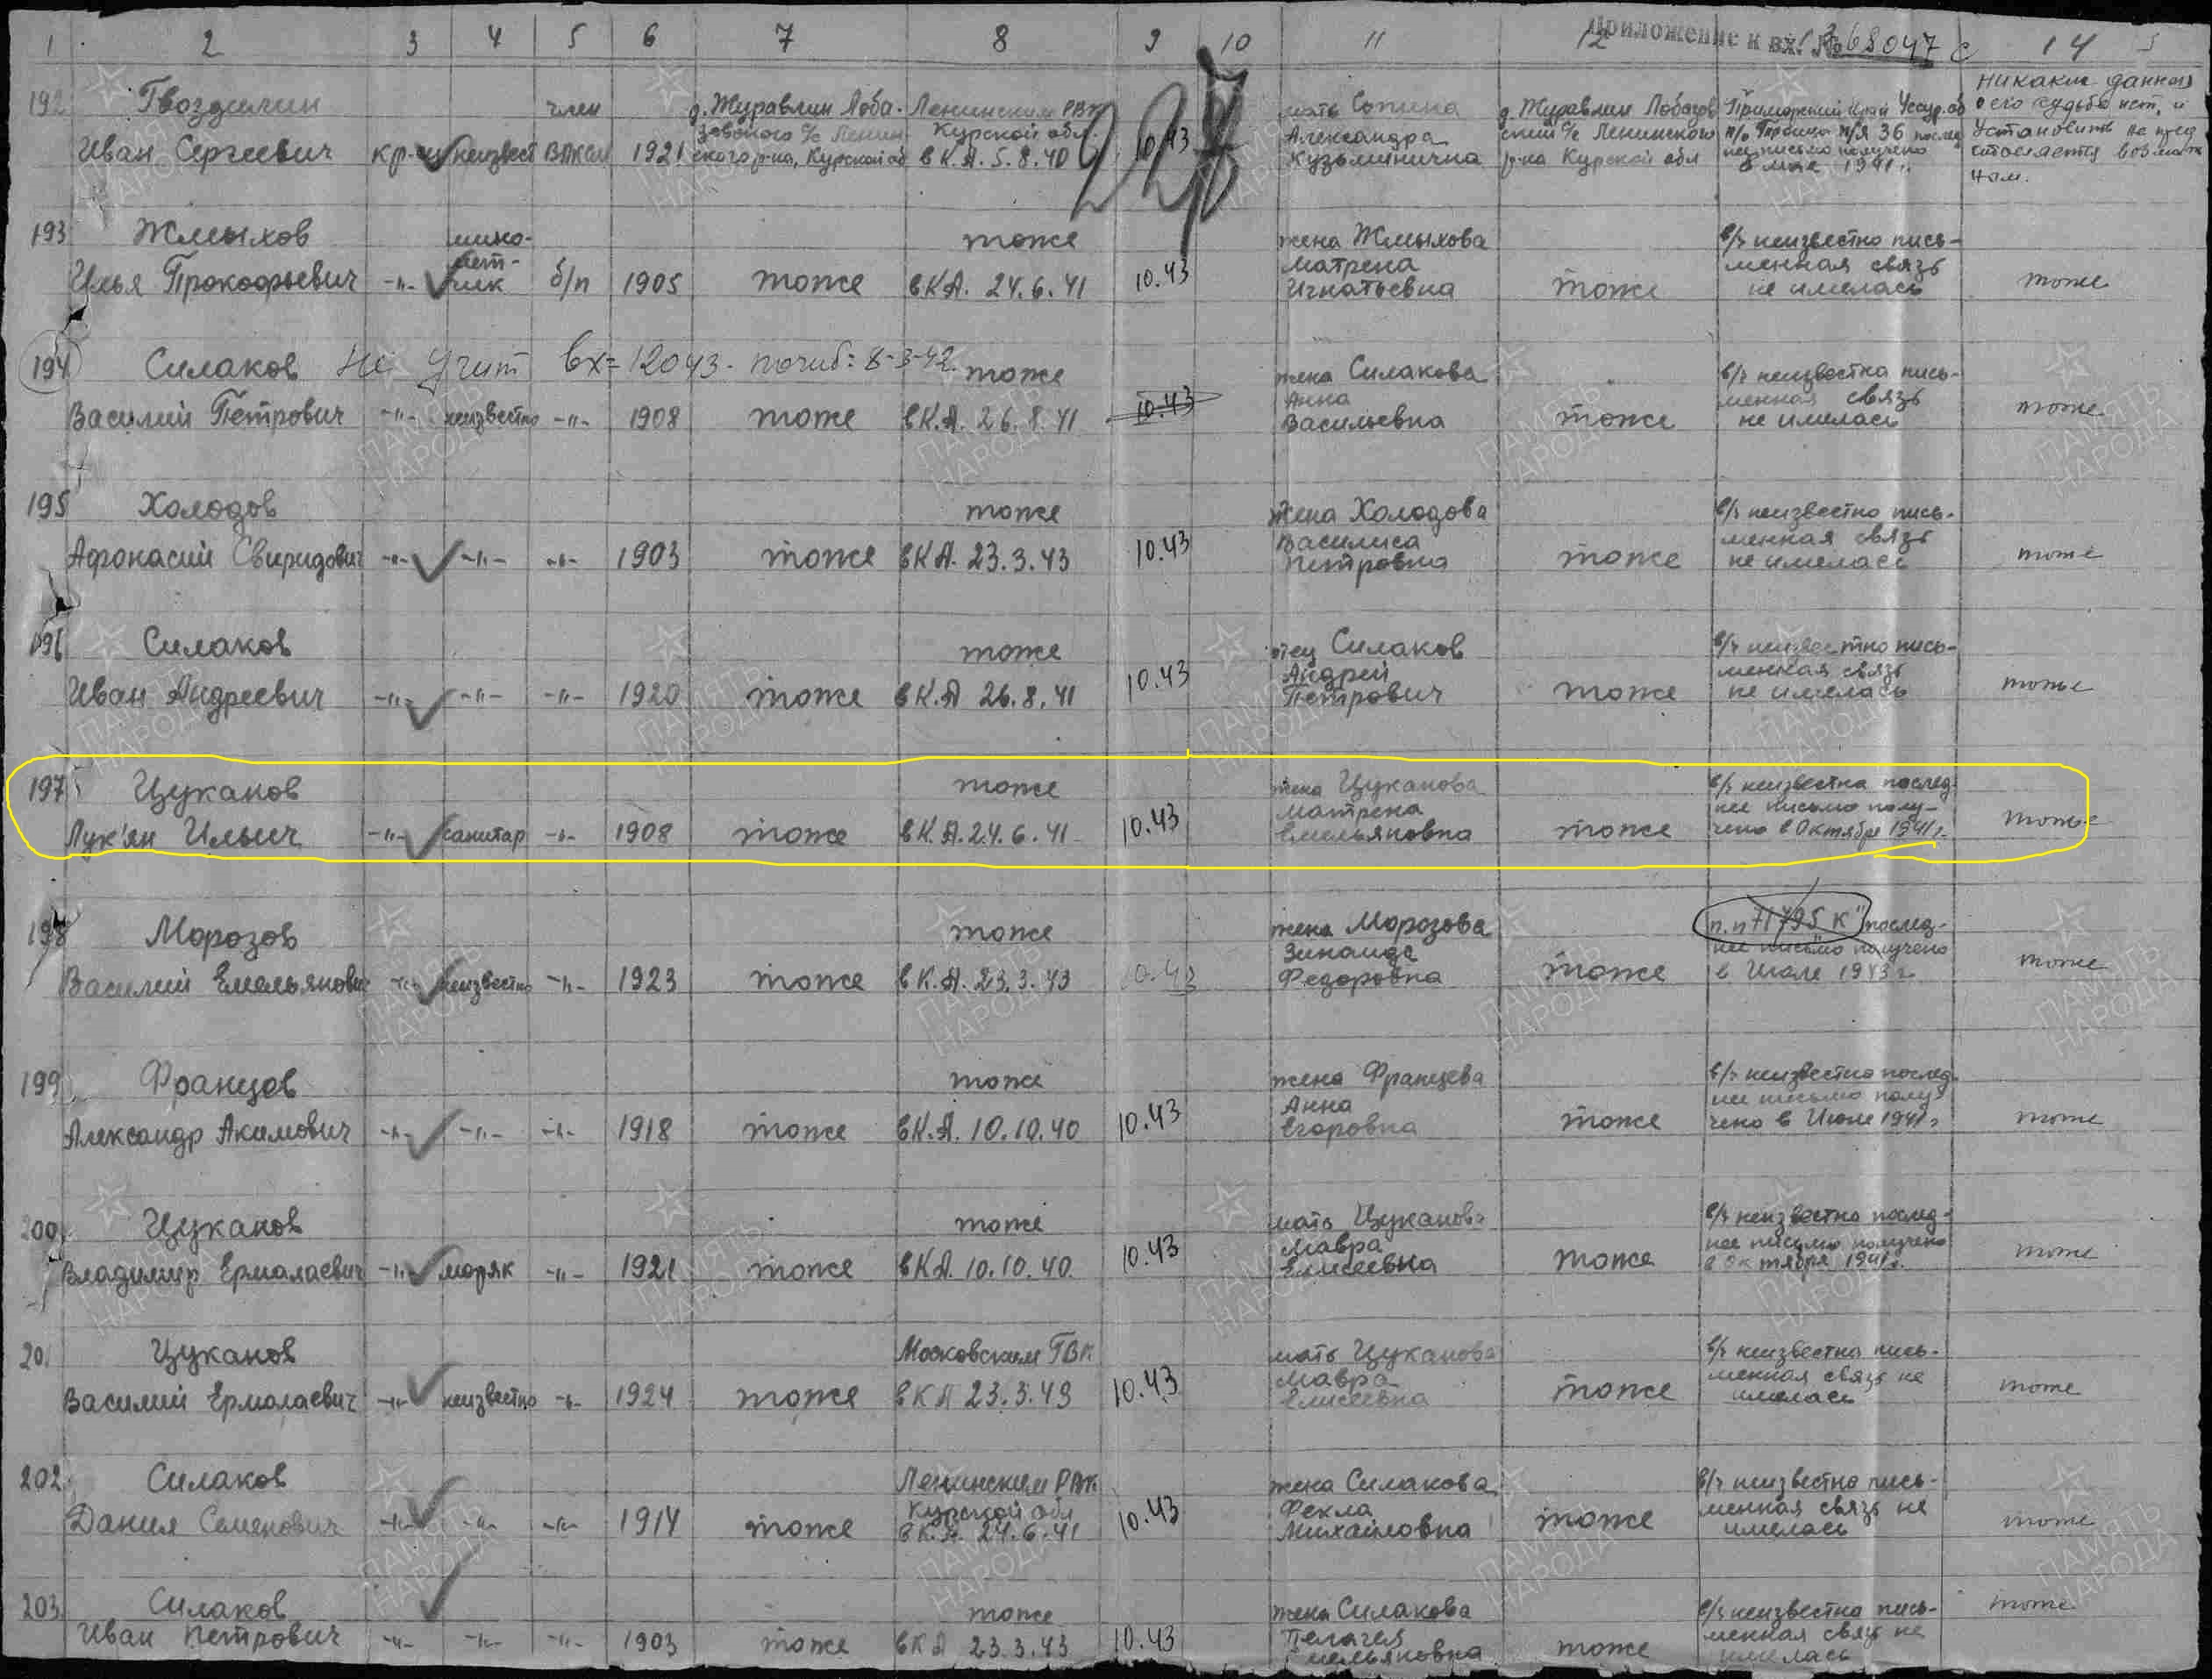 1 2 3 4 5 6 7 8 9 10 11 12 14
Приложение к вх. № 68047 с
192 Гвоздилин член д. Журавлин Лоба- Ленинским РВК мать Сопина д. Журавлин Лобазов Приморский край Уссур. об никаких данных
зовского с/с Ленин- Курской обл. Александра ский с/с Ленинского п/о п/я 36 послед о его судьбе нет, и
Иван Сергеевич кр-ц неизвест ВЛКСМ 1921 ского р-на, Курской об в К.А. 5.8.40 10.43 Кузьминична р-на Курской обл нее письмо получено установить не пред
в мае 1941 г. ставляется возмож
ным.
193 Жмыхов мино- тоже жена Жмыхова в/ч неизвестно пись-
мет- Матрена менная связь
Илья Прокофьевич -"- чик б/п 1905 тоже в К.А. 24.6.41 10.43 Игнатьевна тоже не имелась тоже
194 Силаков Не учит вх=12043. погиб: 8-3-42. тоже жена Силакова в/ч неизвестна пись-
Анна менная связь
Василий Петрович -"- неизвестно -"- 1908 тоже в К.А. 26.8.41 10.43 Васильевна тоже не имелась тоже
195 Холодов тоже жена Холодова в/ч неизвестно пись-
Василиса менная связь
Афонасий Свиридович -"- -"- -"- 1903 тоже в К.А. 23.3.43 10.43 Петровна тоже не имелась тоже
196 Силаков тоже отец Силаков в/ч неизвестно пись-
Андрей менная связь
Иван Андреевич -"- -"- -"- 1920 тоже в К.А 26.8.41 10.43 Петрович тоже не имелась тоже
197 Цуканов тоже жена Цуканова в/ч неизвестна послед-
Матрена нее письмо полу-
Лук'ян Ильич -"- санитар -"- 1908 тоже в К.А. 24.6.41 10.43 Емельяновна тоже чено в Октябре 1941 г. тоже
198 Морозов тоже жена Морозова п.п 71795 К" послед-
Зинаида нее письмо получено
Василий Емельянович -"- неизвестно -"- 1923 тоже в К.А. 23.3.43 10.43 Федоровна тоже в Июле 1943 г. тоже
199 Францов тоже жена Францева в/ч неизвестно послед-
Анна нее письмо полу-
Александр Акимович -"- -"- -"- 1918 тоже в К.А. 10.10.40 10.43 Егоровна тоже чено в Июле 1941 г тоже
200 Цуканов тоже мать Цуканова в/ч неизвестно послед-
Мавра нее письмо получено
Владимир Ермалаевич -"- моряк -"- 1921 тоже в К.А. 10.10.40 10.43 Елисеевна тоже в Октября 1941 г. тоже
20 Цуканов Московским ГВК мать Цуканова в/ч неизвестна пись-
Мавра менная связь не
Василий Ермалаевич -"- неизвестно -"- 1924 тоже в К А 23.3.43 10.43 Елисеевна тоже имелась тоже
202 Силаков Ленинским РВК жена Силакова в/ч неизвестно пись-
Курской обл Фекла менная связь не
Данил Семенович -"- -"- -"- 1914 тоже в К.А. 24.6.41 10.43 Михайловна тоже имелась тоже
203 Силаков тоже жена Силакова в/ч неизвестно пись- тоже
Пелагея менная связь не
Иван Петрович -"- -"- -"- 1903 тоже в К А 23.3.43 10.43 Емельяновна тоже имелась
ПАМЯТЬ НАРОДА